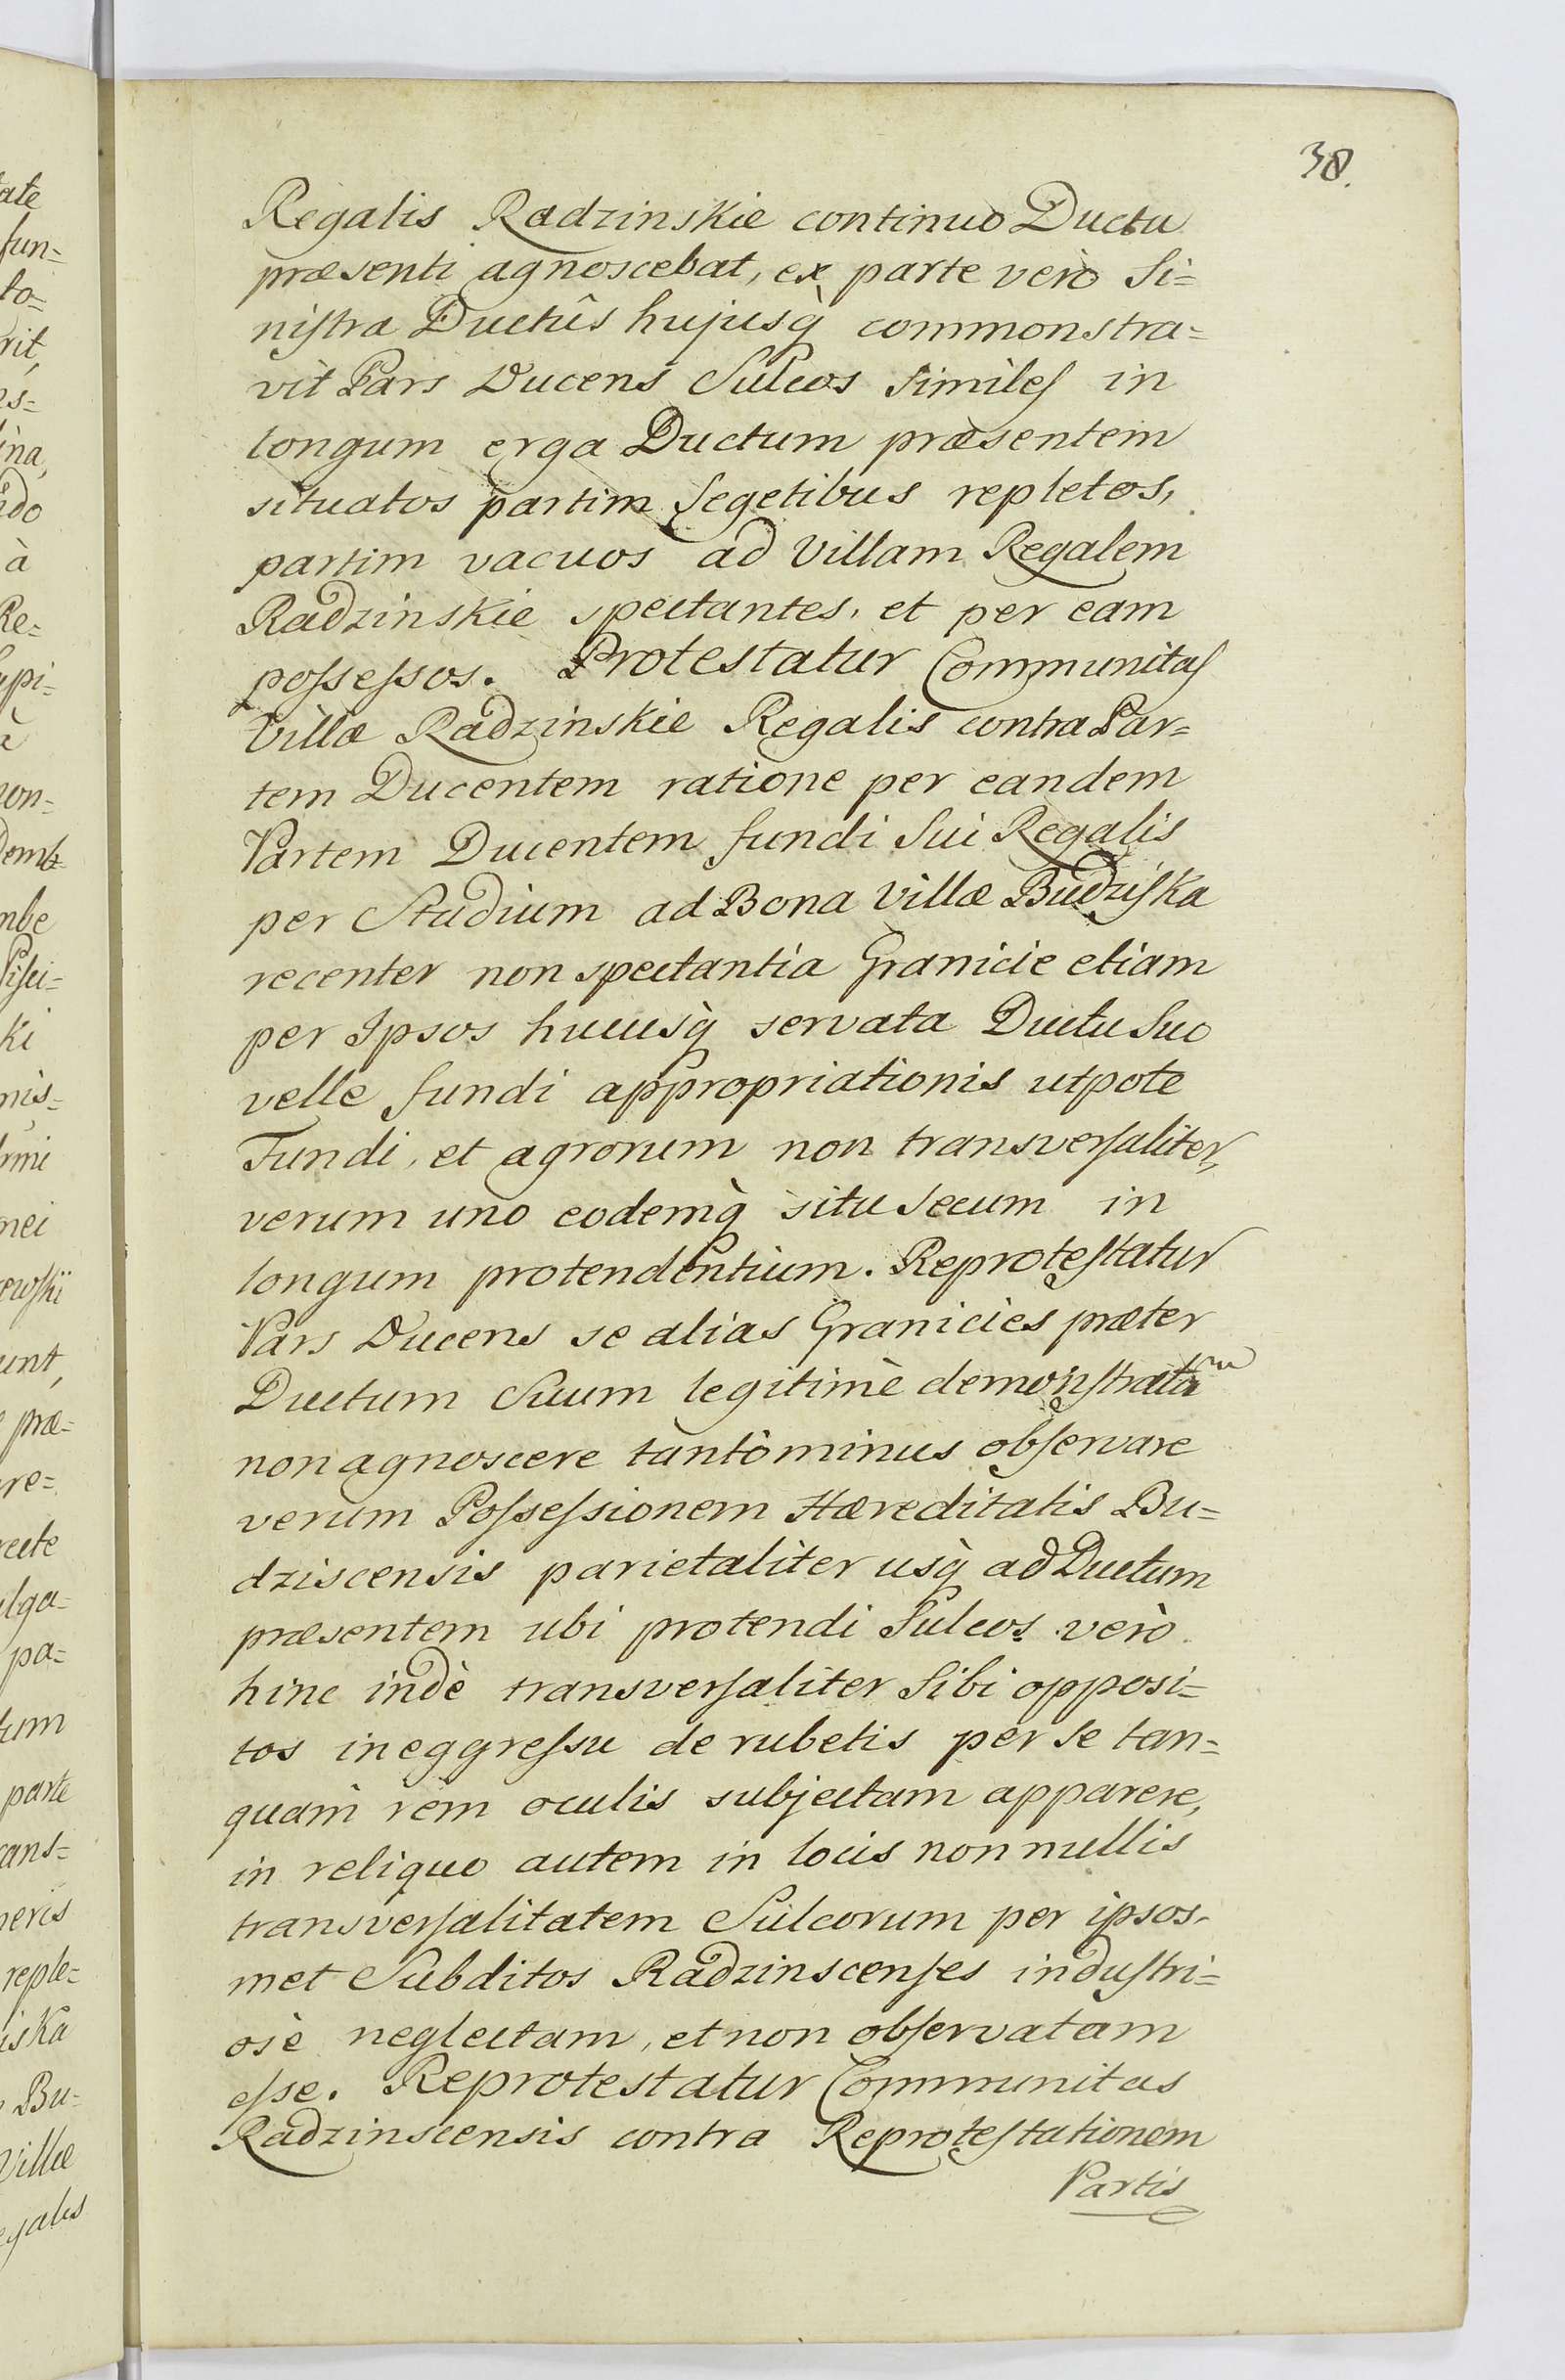 38.
Regalis Radzinskie continuo Ductu
præsenti agnoscebat, ex parte verò Si=
niſtra Ductûs hujusq̀ commonstra=
vit Pars Ducens Sulcos Simileſ in
longum erga Ductum præsentem
situatos partim Segetibus repletos,
partim vacuos ad Villam Regalem
Radzinskie spectantes, et per eam
poſseſsos. Protestatur Communitaſ
Villæ Radzinskie Regalis contra Par=
tem Ducentem ratione per eandem
Partem Ducentem fundi Sui Regalis
per Studium ad Bona Villæ Budziſka
recenter non spectantia Granicie etiam
per Ipsos hucusq̀ servata Ductu Suo
velle fundi appropriationis utpote
Fundi, et agrorum non transverſaliter,
verum uno eodemq̀ situ Secum in
longum protendentium. Reproteſtatur
Pars Ducens se alias Granicies præter
Ductum Suum legitimè demonſtratam
non agnoscere tantòminus obſervare
verum Poſseſsionem Hæreditatis Bu=
dziscensis parietaliter usq̀ ad Ductum
præsentem ubi protendi Sulcos verò
hinc indè transverſaliter Sibi opposi=
tos in eggreſsu de rubetis per Se tan=
quam rem oculis subjectam apparere,
in reliquo autem in locis non nullis
transverſalitatem Sulcorum per ipsos-
met Subditos Radzinscenſes induſtri=
osè neglectam, et non obſervatam
eſse. Reprotestatur Communitas
Radzinscensis contra Reproteſtationem
Partis